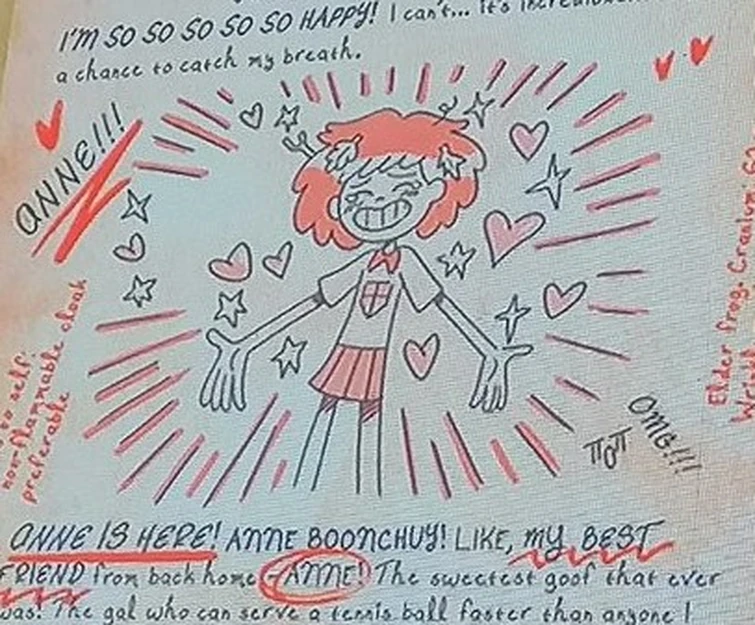 I'M SO SO SO SO SO HAPPY! I can't... it's
a chance to catch my breath.
ANNE!!!
non-flammable cloak
preferable
Elder frog.
OMG!!!
TOT
ANNE IS HERE! ANNE BOONCHUY! LIKE, MY BEST
FRIEND from back home -ANNE! The sweetest goof that ever
was! The gal who can serve a tennis ball faster than anyone I